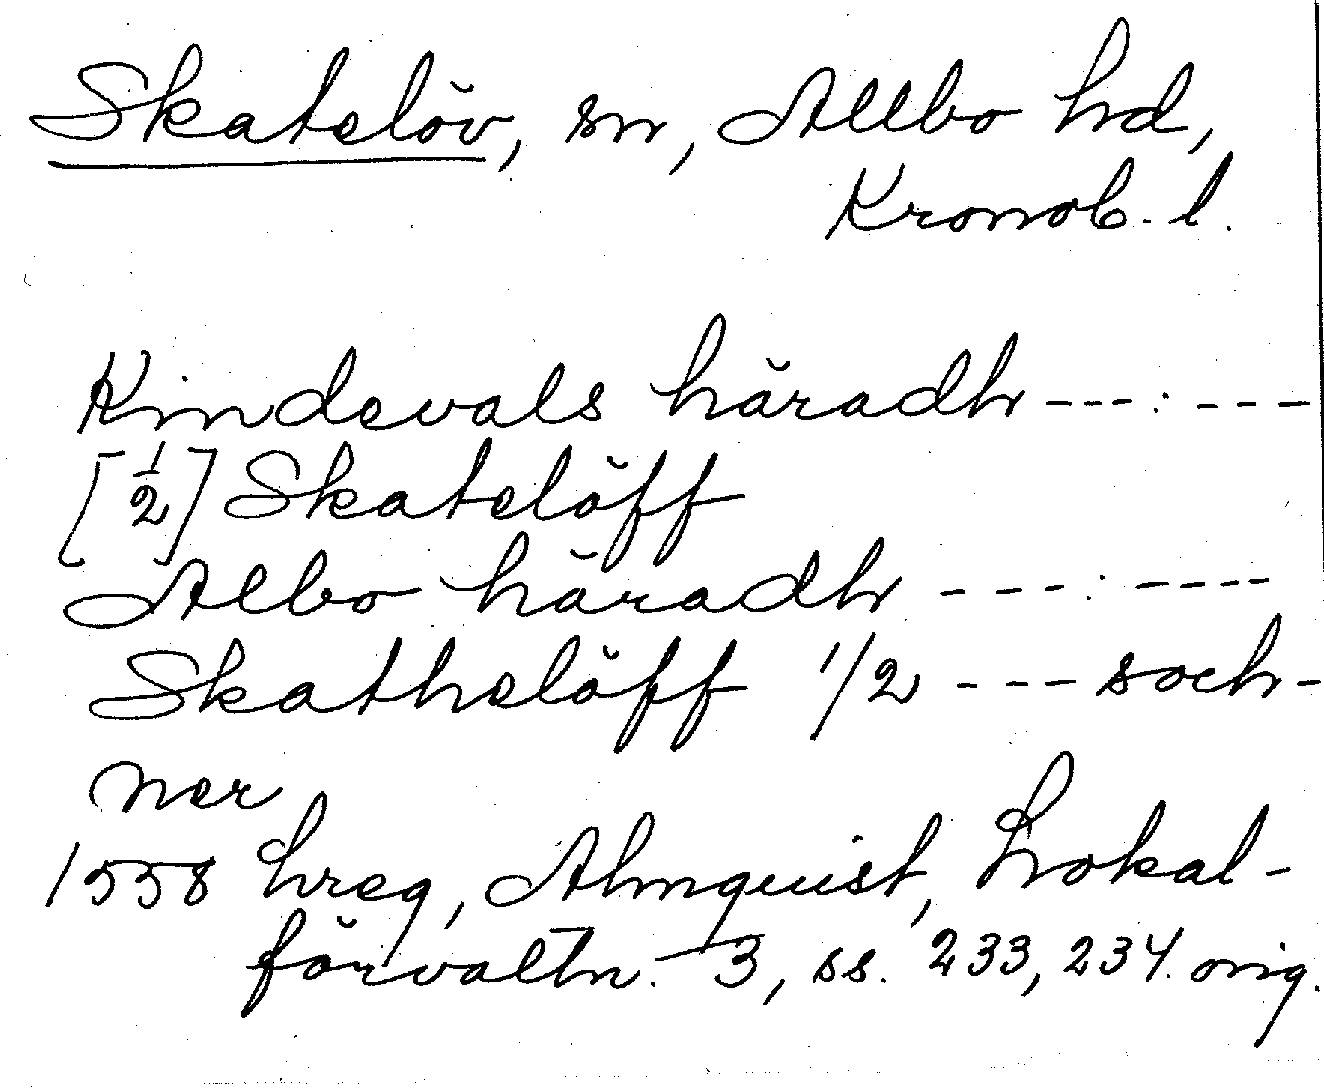 Skatelöv, sn, Allbo hd,
Kronob. l.
Kindevals häradh --- : ---
[1/2] Skatelöff
Albo häradh --- : ----
Skathelöff 1/2 --- soch-
ner
1558 hreg, Almquist, Lokal-
förvaltn. 3, ss. 233, 234. orig.